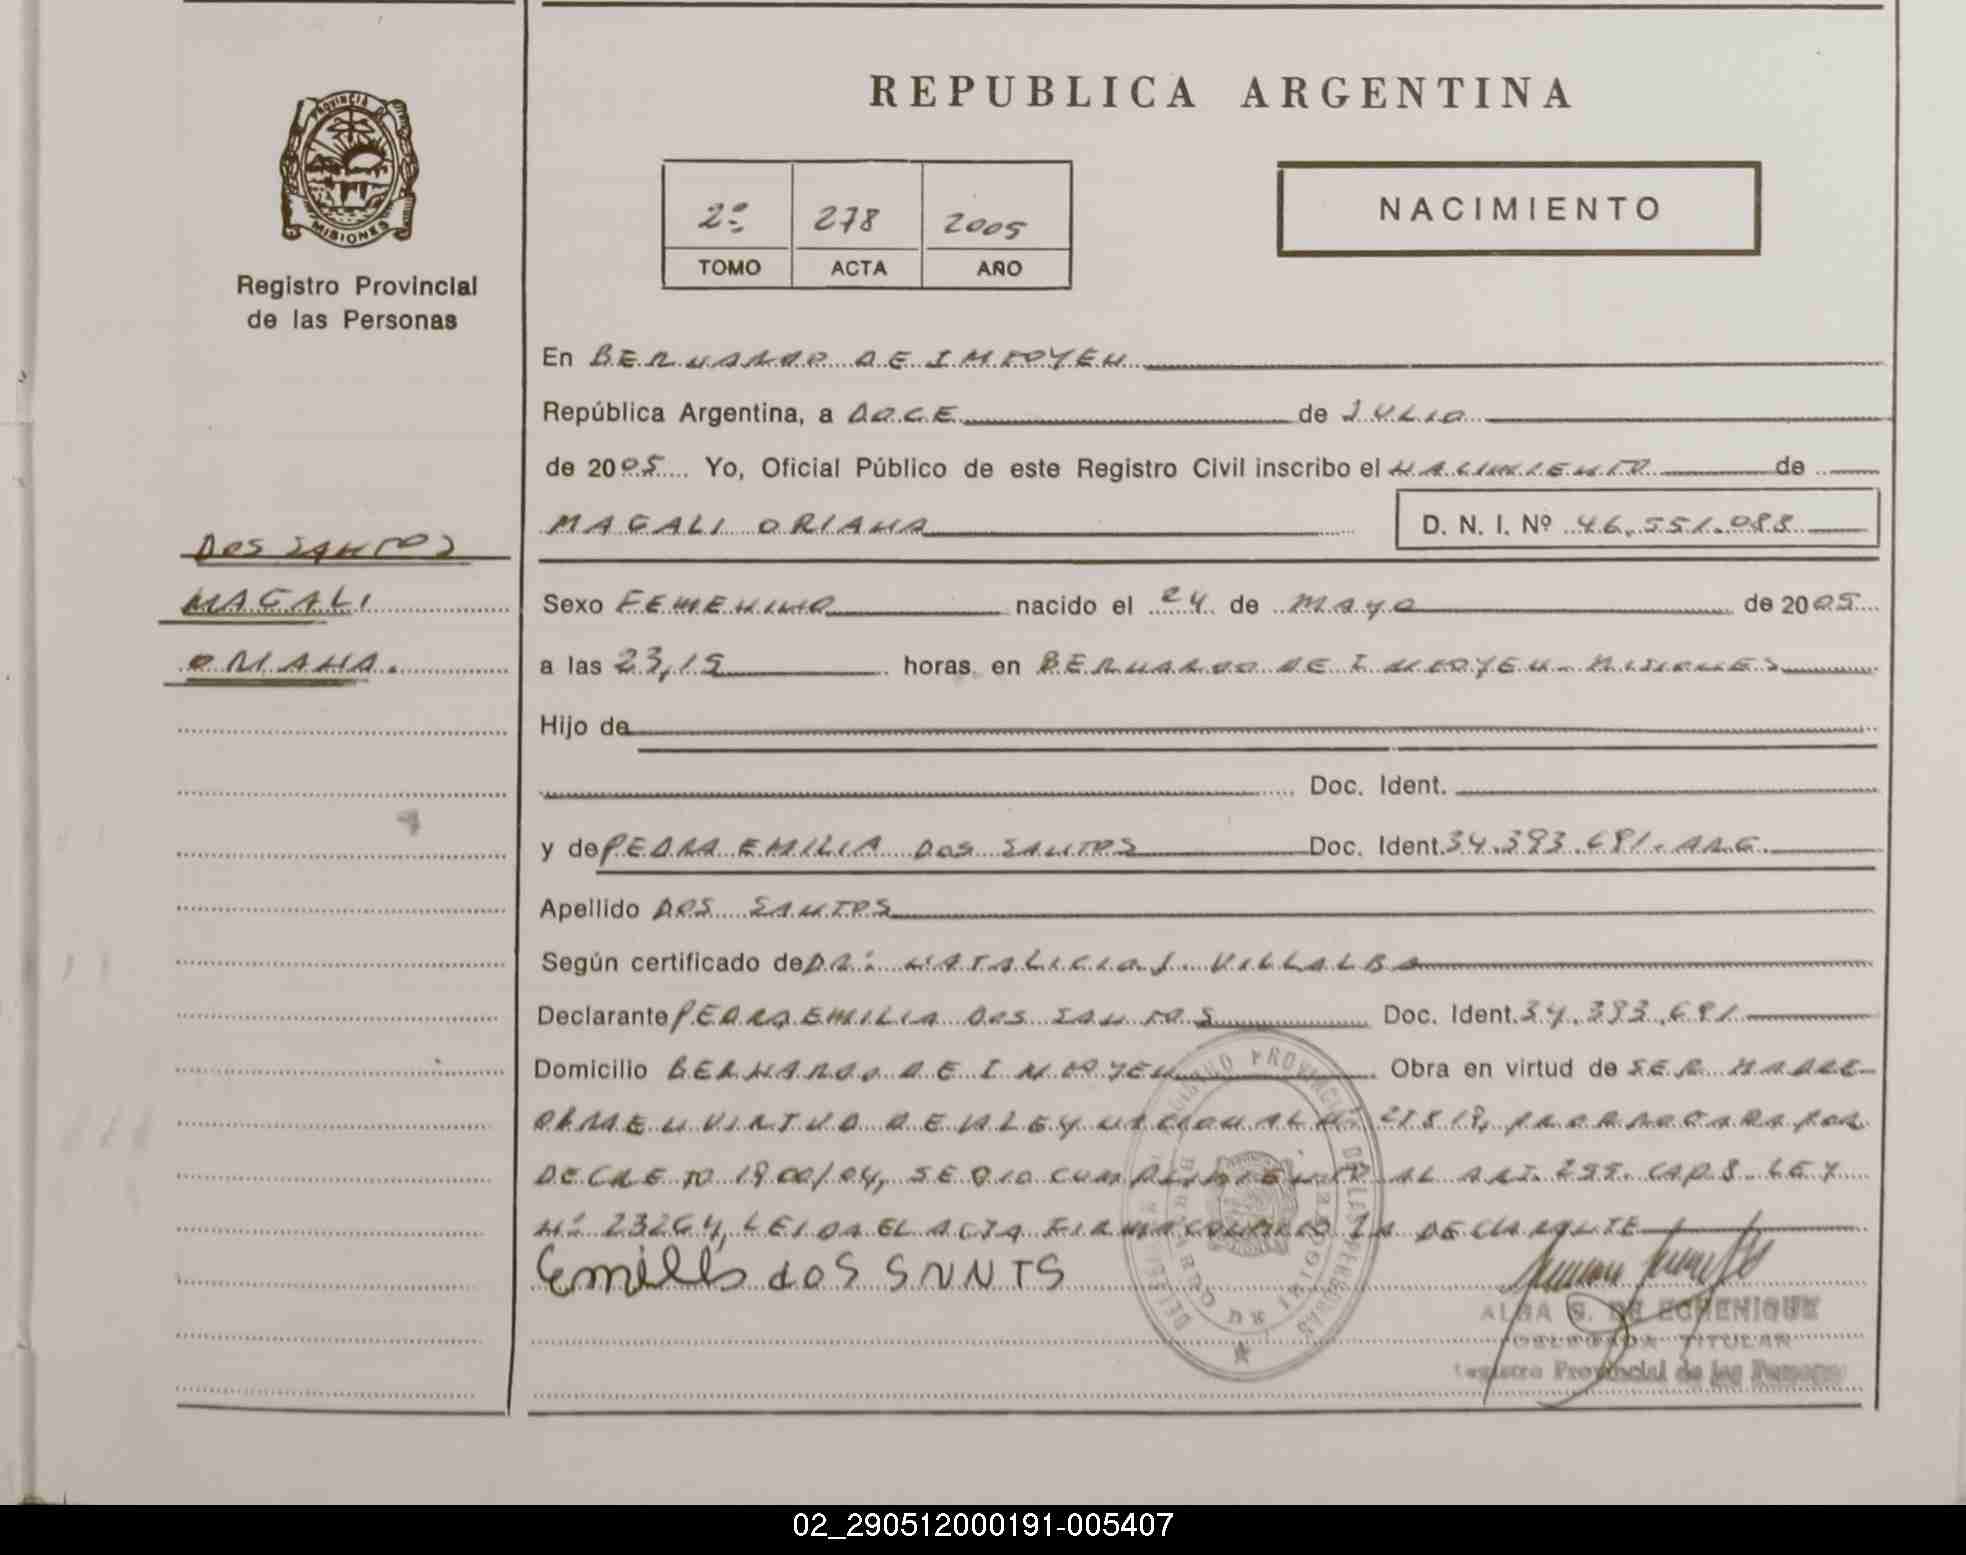 REPUBLICA ARGENTINA
PROVINCIA DE
MISIONES
Registro Provincial
de las Personas
2º 278 2005
TOMO ACTA AÑO
NACIMIENTO
En BERNARDO DE IRIGOYEN
República Argentina, a DOCE de JULIO
de 2005 Yo, Oficial Público de este Registro Civil inscribo el NACIMIENTO de
MAGALI ORIANA D. N. I. Nº 46.551.083
DOS SANTOS
MAGALI
ORIANA.
Sexo FEMENINO nacido el 24 de MAYO de 2005
a las 23,15 horas en BERNARDO DE IRIGOYEN - MISIONES
Hijo de
Doc. Ident.
y de PEDRA EMILIA DOS SANTOS Doc. Ident. 34.393.691. ARG.
Apellido DOS SANTOS
Según certificado de DRª NATALICIA J. VILLALBA
Declarante PEDRA EMILIA DOS SANTOS Doc. Ident. 34.393.691
Domicilio BERNARDO DE IRIGOYEN Obra en virtud de SER MADRE
OBRA EN VIRTUD DE LA LEY NACIONAL Nº 25819, PRORROGADA POR
DECRETO 1900/04, SE DIO CUMPLIMIENTO AL ART. 255. CAP. 3. LEY
Nº 23264, LEIDA EL ACTA FIRMA CONMIGO LA DECLARANTE
Emilis dOS SNNTS
ALBA G. DE ECHENIQUE
DELEGADA TITULAR
Registro Provincial de las Personas
02_290512000191-005407